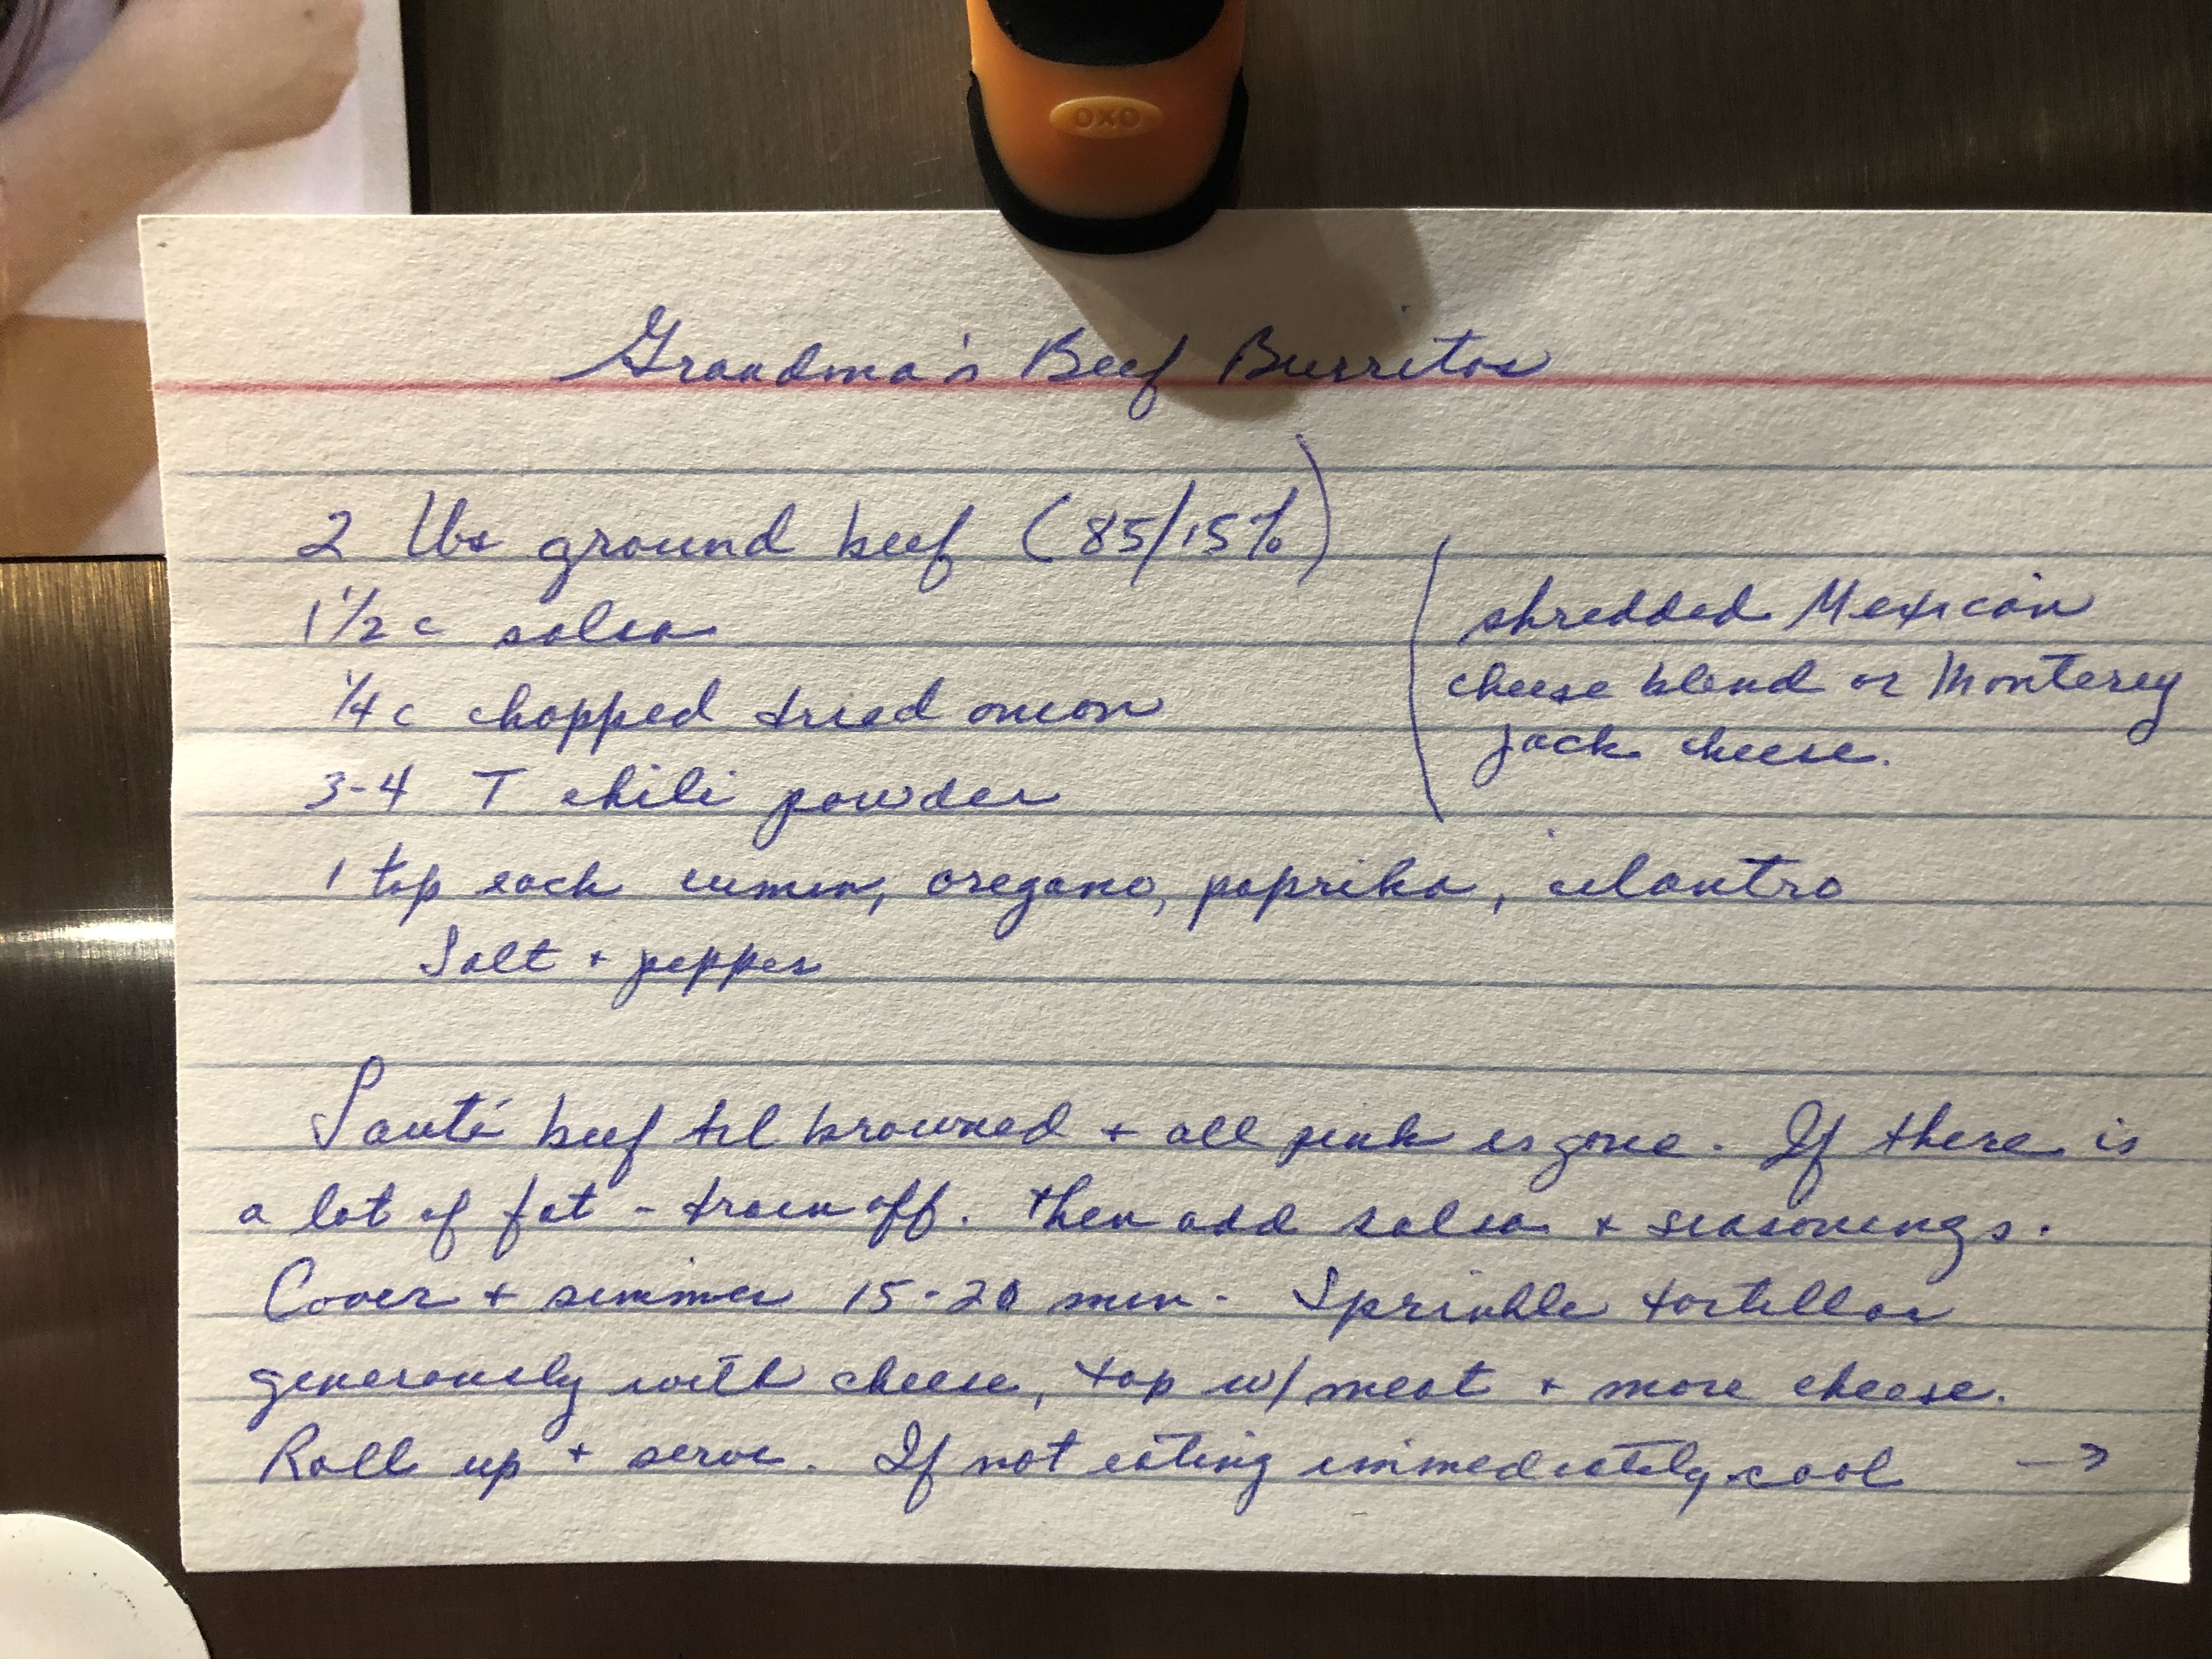 OXO
Grandma's Beef Burritos
2 lbs ground beef (85/15%)
1 1/2 c salsa
1/4 c chopped dried onion
3-4 T chili powder
shredded Mexican
cheese blend or Monterey
jack cheese.
1 tsp each cumin, oregano, paprika, cilantro
Salt + pepper
Sauté beef til browned + all pink is gone. If there is
a lot of fat - drain off. Then add salsa + seasonings.
Cover + simmer 15-20 min. Sprinkle tortillas
generously with cheese, top w/ meat + more cheese.
Roll up + serve. If not eating immediately cool →